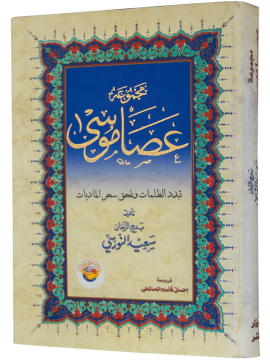 مجموعة
عصا موسى
تبدد الظلمات وتلحق سحر الماديات
تأليف
بديع الزمان
سعيد النورسي
ترجمة
إحسان قاسم الصالحي